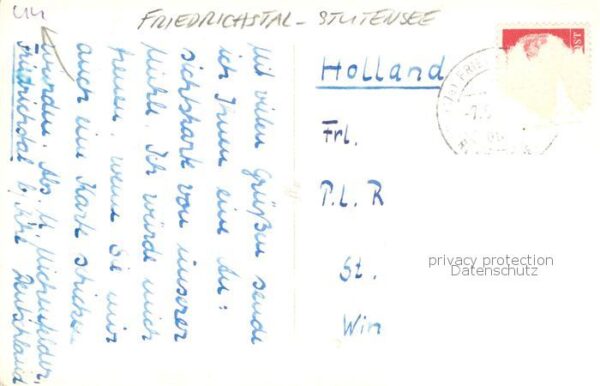 44
FRIEDRICHSTAL - STUTENSEE
Mit vielen Grüßen sende
ich Ihnen eine An=
sichtskarte von unserer
Mühle. Ich würde mich
freuen, wenn Sie mir
auch eine Karte schicken
würden. Abs. M.
Friedrichstal b. Deutschland
Holland
Frl.
P.L. R
St.
Win
privacy protection
Datenschutz